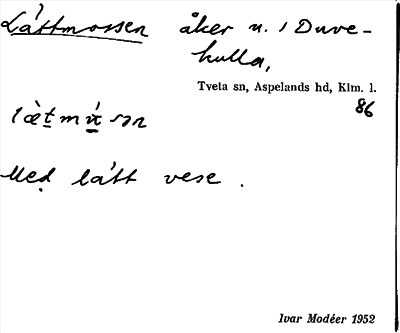 Låttmossen åker u. / Duve-
kulla,
Tveta sn, Aspelands hd, Klm. l.
86
Med lått vese.
Ivar Modéer 1952